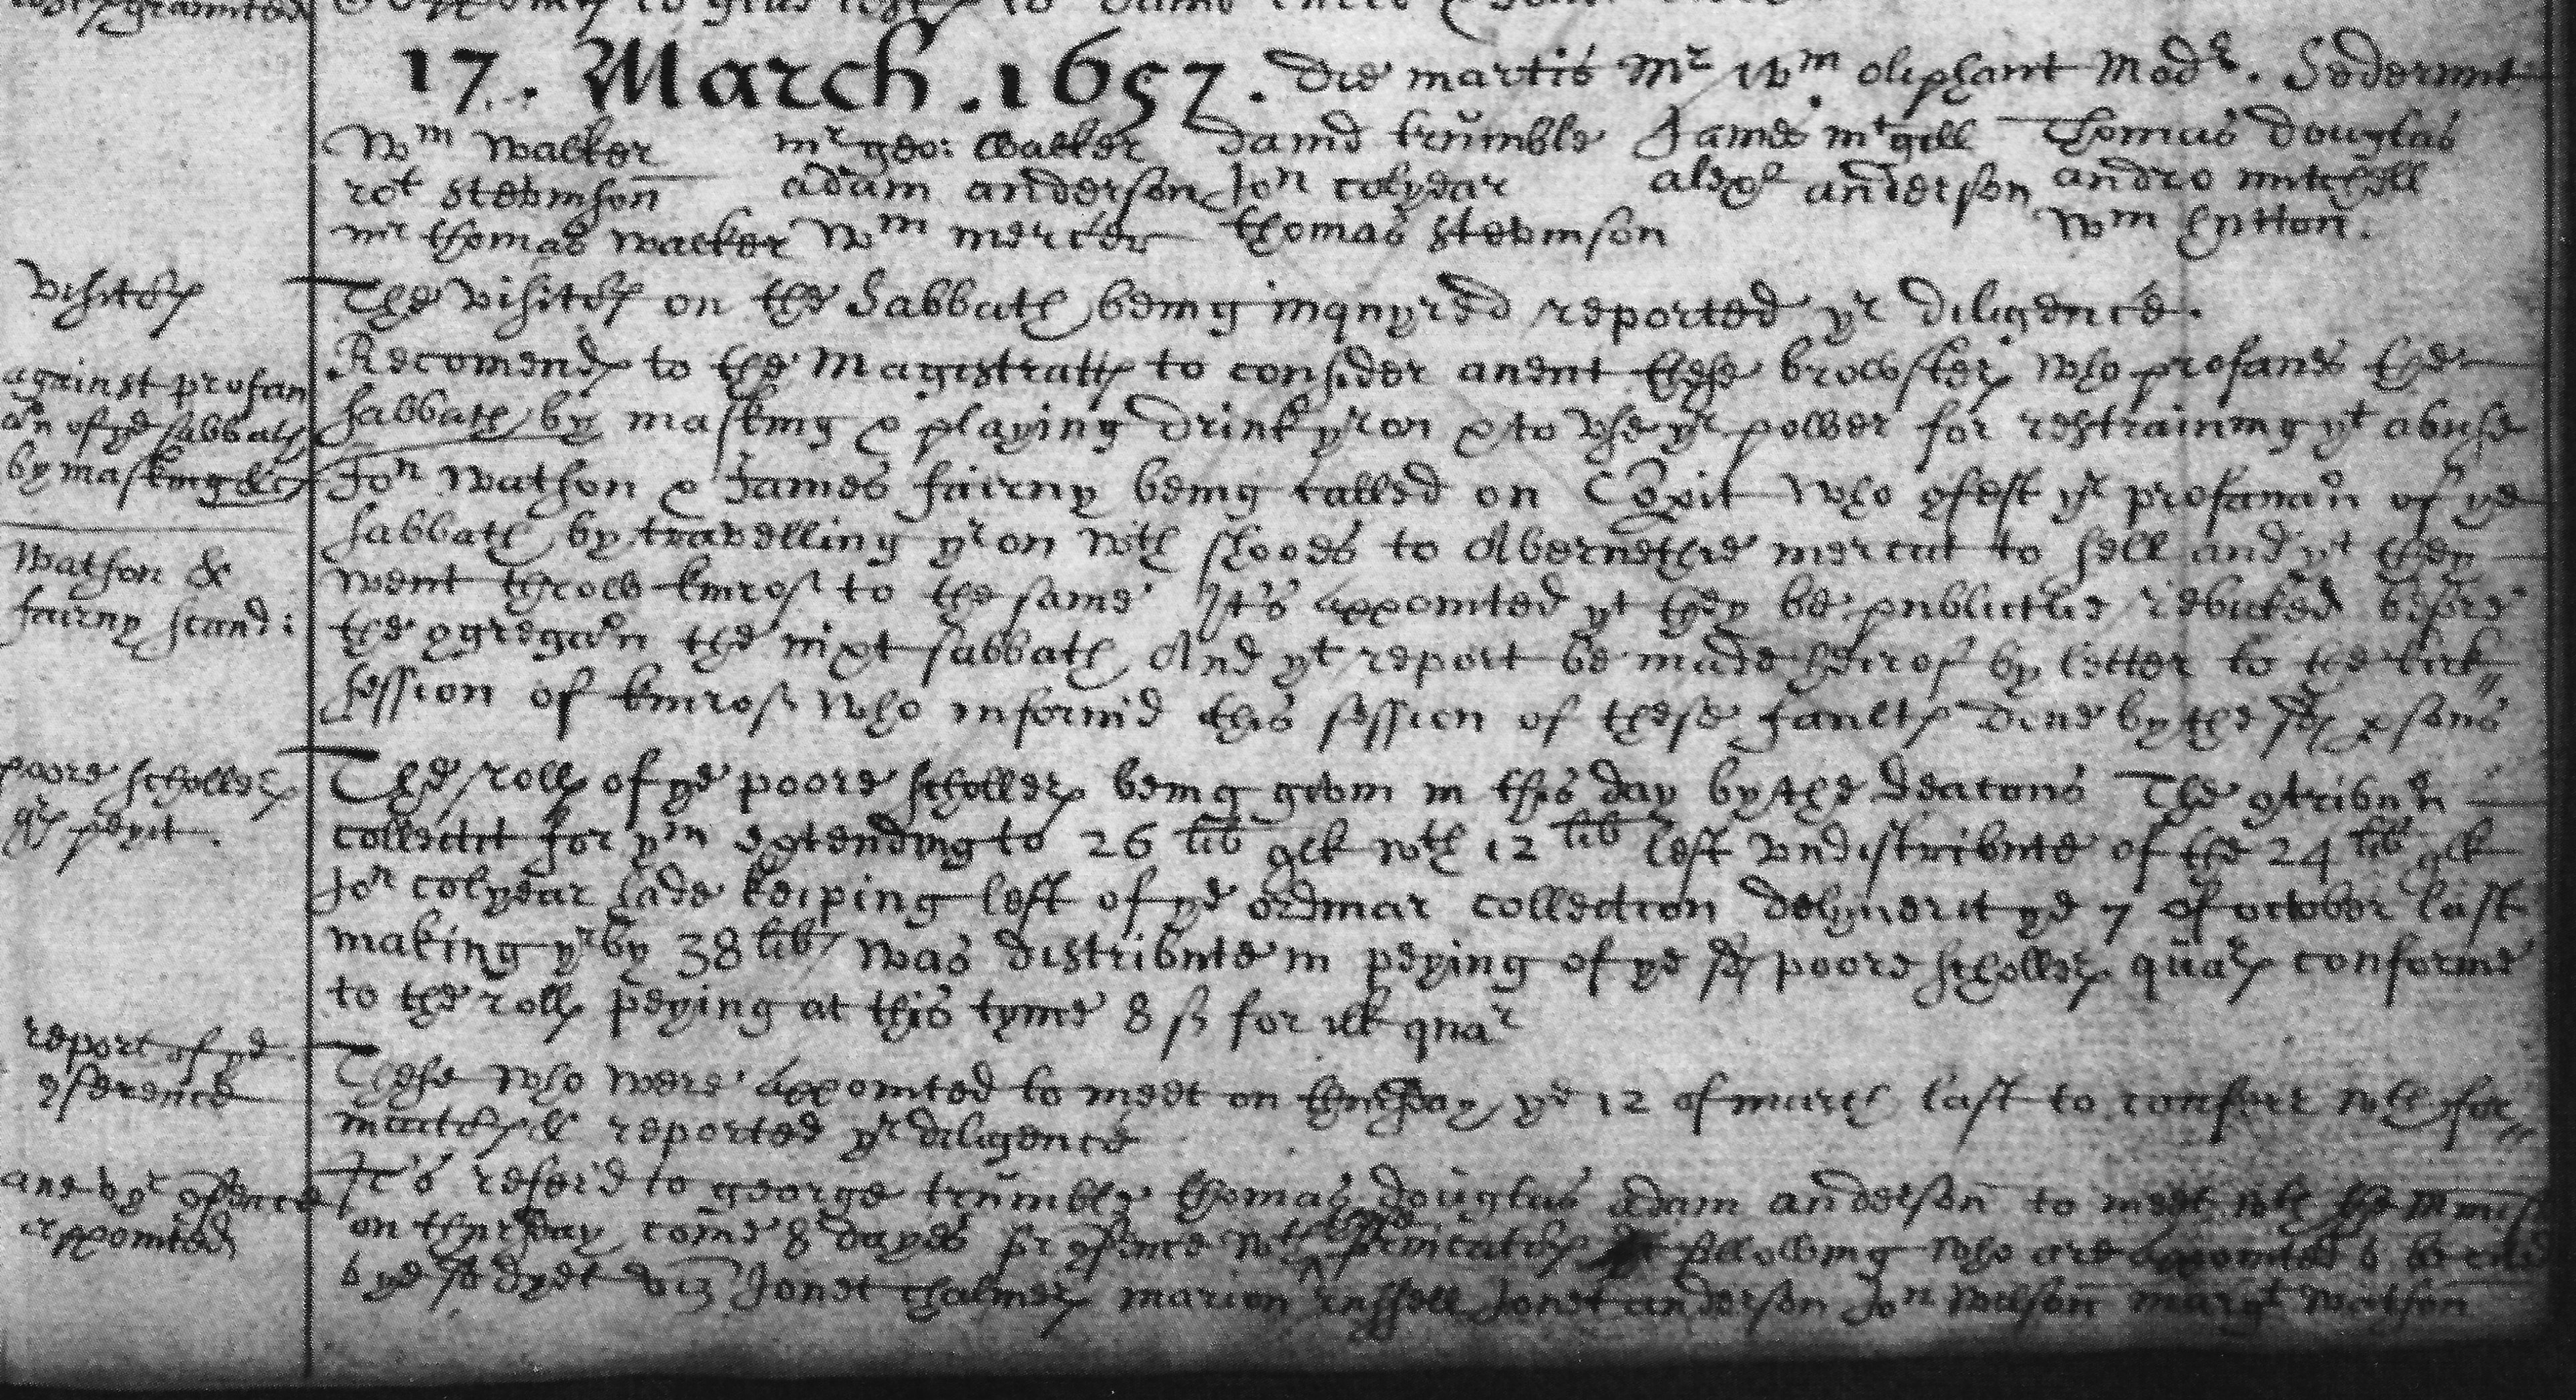 17. March .1657. Die martis Mr Wm oliphant Modr. Sederunt
Wm Walker mr geo: Walker David trumble James mcgill Thomas Douglas
rot Stevinson adam anderson Jon colyear alexr anderson andro mitchell
mr thomas Walker Wm mercer thomas Stevinson Wm hutton.
Visitors
The Visitors on the Sabbath being inquyred reported yr diligence.
against profan
aon of ye sabbath
by masking &c
Recomends to the Magistratts to consider anent these browsters who profanes the
sabbath by masking & playing drink yron & to use yr power for restraining yt abuse
Watson &
fairny stand:
Jon Watson & James fairny being called on Cōpeit who cōfest yr profanaōn of ye
sabbath by travelling yron with shooes to Abernethie mercat to sell and yt they
went throw kinross to the same It's appointed yt they be publictlie rebuked before
the cōgregaōn the nixt sabbath And yt report be made heirof by letter to the kirk
session of kinross who informd this session of these faults done by the sds psons
poore schollers
qrs peyit.
The rolls of ye poore schollers being gevin in this day by the deacons The cōtribuōn
collectit for ym extending to 26 lib qlk with 12 lib left undistribute of the 24 lib qlk
Jon colyear hade keiping left of ye ordinar collection delyuerit ye 7 of october last
making yrby 38 lib was distribute in peying of ye sds poore schollers quars conforme
to the rolls peying at this tyme 8 ß for ilk quar
report of ye
cōference
These who were appointed to meet on thursday ye 12 of march last to conferr with for
matters & reported yr diligence
ane oyr cōference
appointed
It's referd to george trumble thomas douglas adam anderson to meet with the minister
on thursday come 8 dayes for cōference with following who are appointed to be
to ye sd dyet viz Jonet chalmers marion russell Jonet anderson Jon Wilson margt Watson